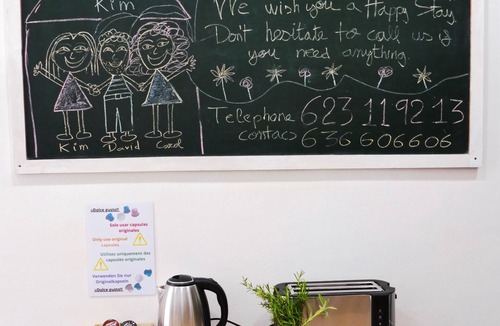 Kim
We wish you a Happy Stay.
Don't hesitate to call us if
you need anything.
Telephone 623 11 92 13
contacs 636 606606
Kim David Carol
¡¡Dolce gusto!!
Solo usar capsulas
originales
Only use original
capsules
Utilisez uniquement des
capsules originales
Verwenden Sie nur
Originalkapseln
¡¡Dolce gusto!!